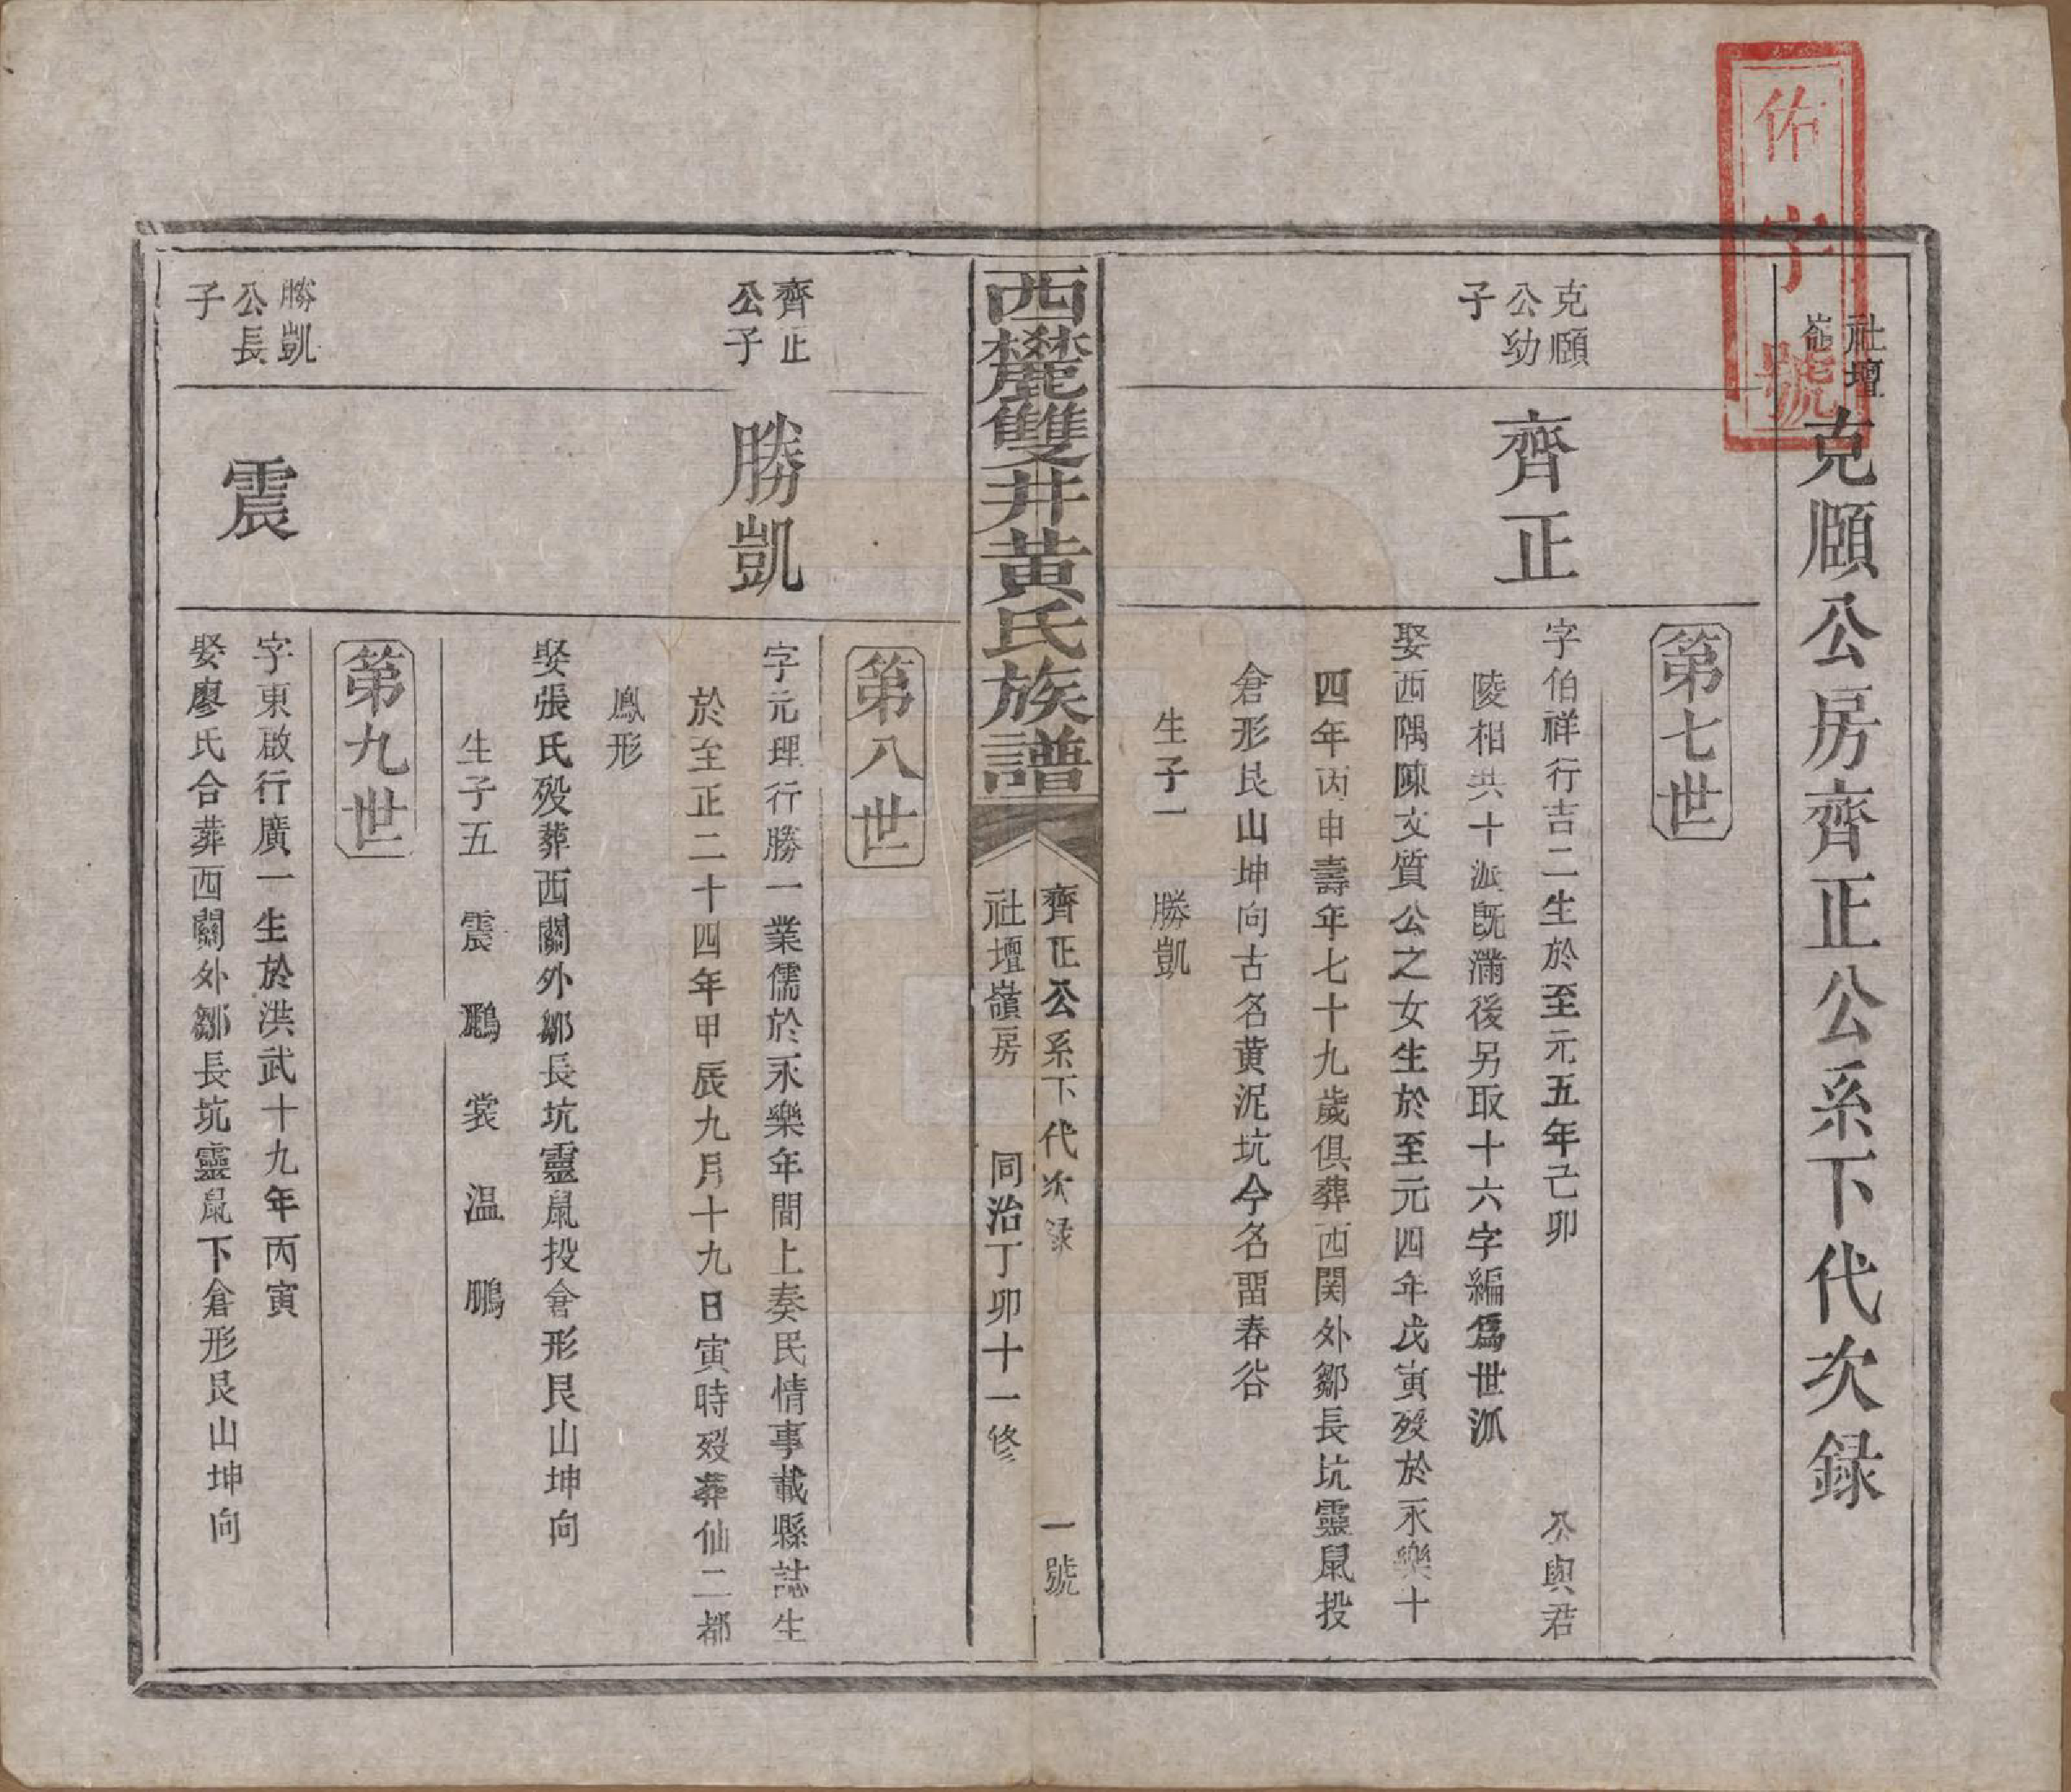 佑字號
社壇嶺克頤公房齊正公系下代次録
第七世
克頤公幼子
齊正
字伯祥行吉二生於至元五年己卯　公與君
陵相共十派既滿後另取十六字編爲世派
娶西隅陳文質公之女生於至元四年戊寅殁於永樂十
四年丙申壽年七十九歲俱葬西関外鄒長坑靈鼠投
倉形艮山坤向古名黄泥坑今名畱春谷
生子一　勝凱
西麓雙井黄氏族譜
齊正公系下代次録　一號
社壇嶺房　同治丁卯十一修
第八世
齊正公子
勝凱
字元理行勝一業儒於永樂年間上奏民情事載縣誌生
於至正二十四年甲辰九月十九日寅時殁葬仙二都
鳳形
娶張氏殁葬西關外鄒長坑靈鼠投倉形艮山坤向
生子五　震　鸝　裳　温　鵬
第九世
勝凱公長子
震
字東啟行廣一生於洪武十九年丙寅
娶廖氏合葬西關外鄒長坑靈鼠下倉形艮山坤向